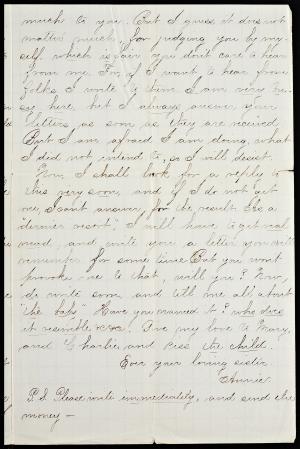 much to you. But I guess it does not
matter much, for judging you by my-
self, which is fair, you don't care to hear
from me. For, if I want to hear from
folks I write to them. I am very bu-
sy here, but I always answer your
letters as soon as they are received
But I am afraid I am doing, what
I did not intend to, so I will desist.
Now, I shall look for a reply to
this very soon, and if I do not get
one, I can't answer for the result. As a
"dernier resort," I will have to get real
mad, and write you a letter you will
remember for some time. But you won't
provoke me to that, will you? Now,
do write soon, and tell me all about
"the baby." Have you named it? who does
it resemble &c. Give my love to Mary,
and Charlie and kiss the child.
Ever your loving sister
Annie.
P.S. Please write immediately, and send the
money —